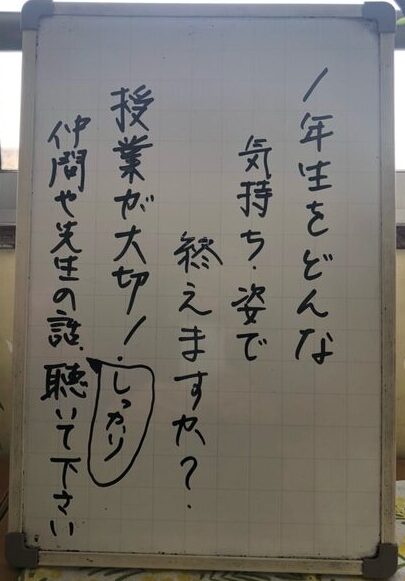 1年生をどんな
気持ち・姿で
終えますか?
授業が大切!
仲間や先生の話、聴いて下さい
しっかり